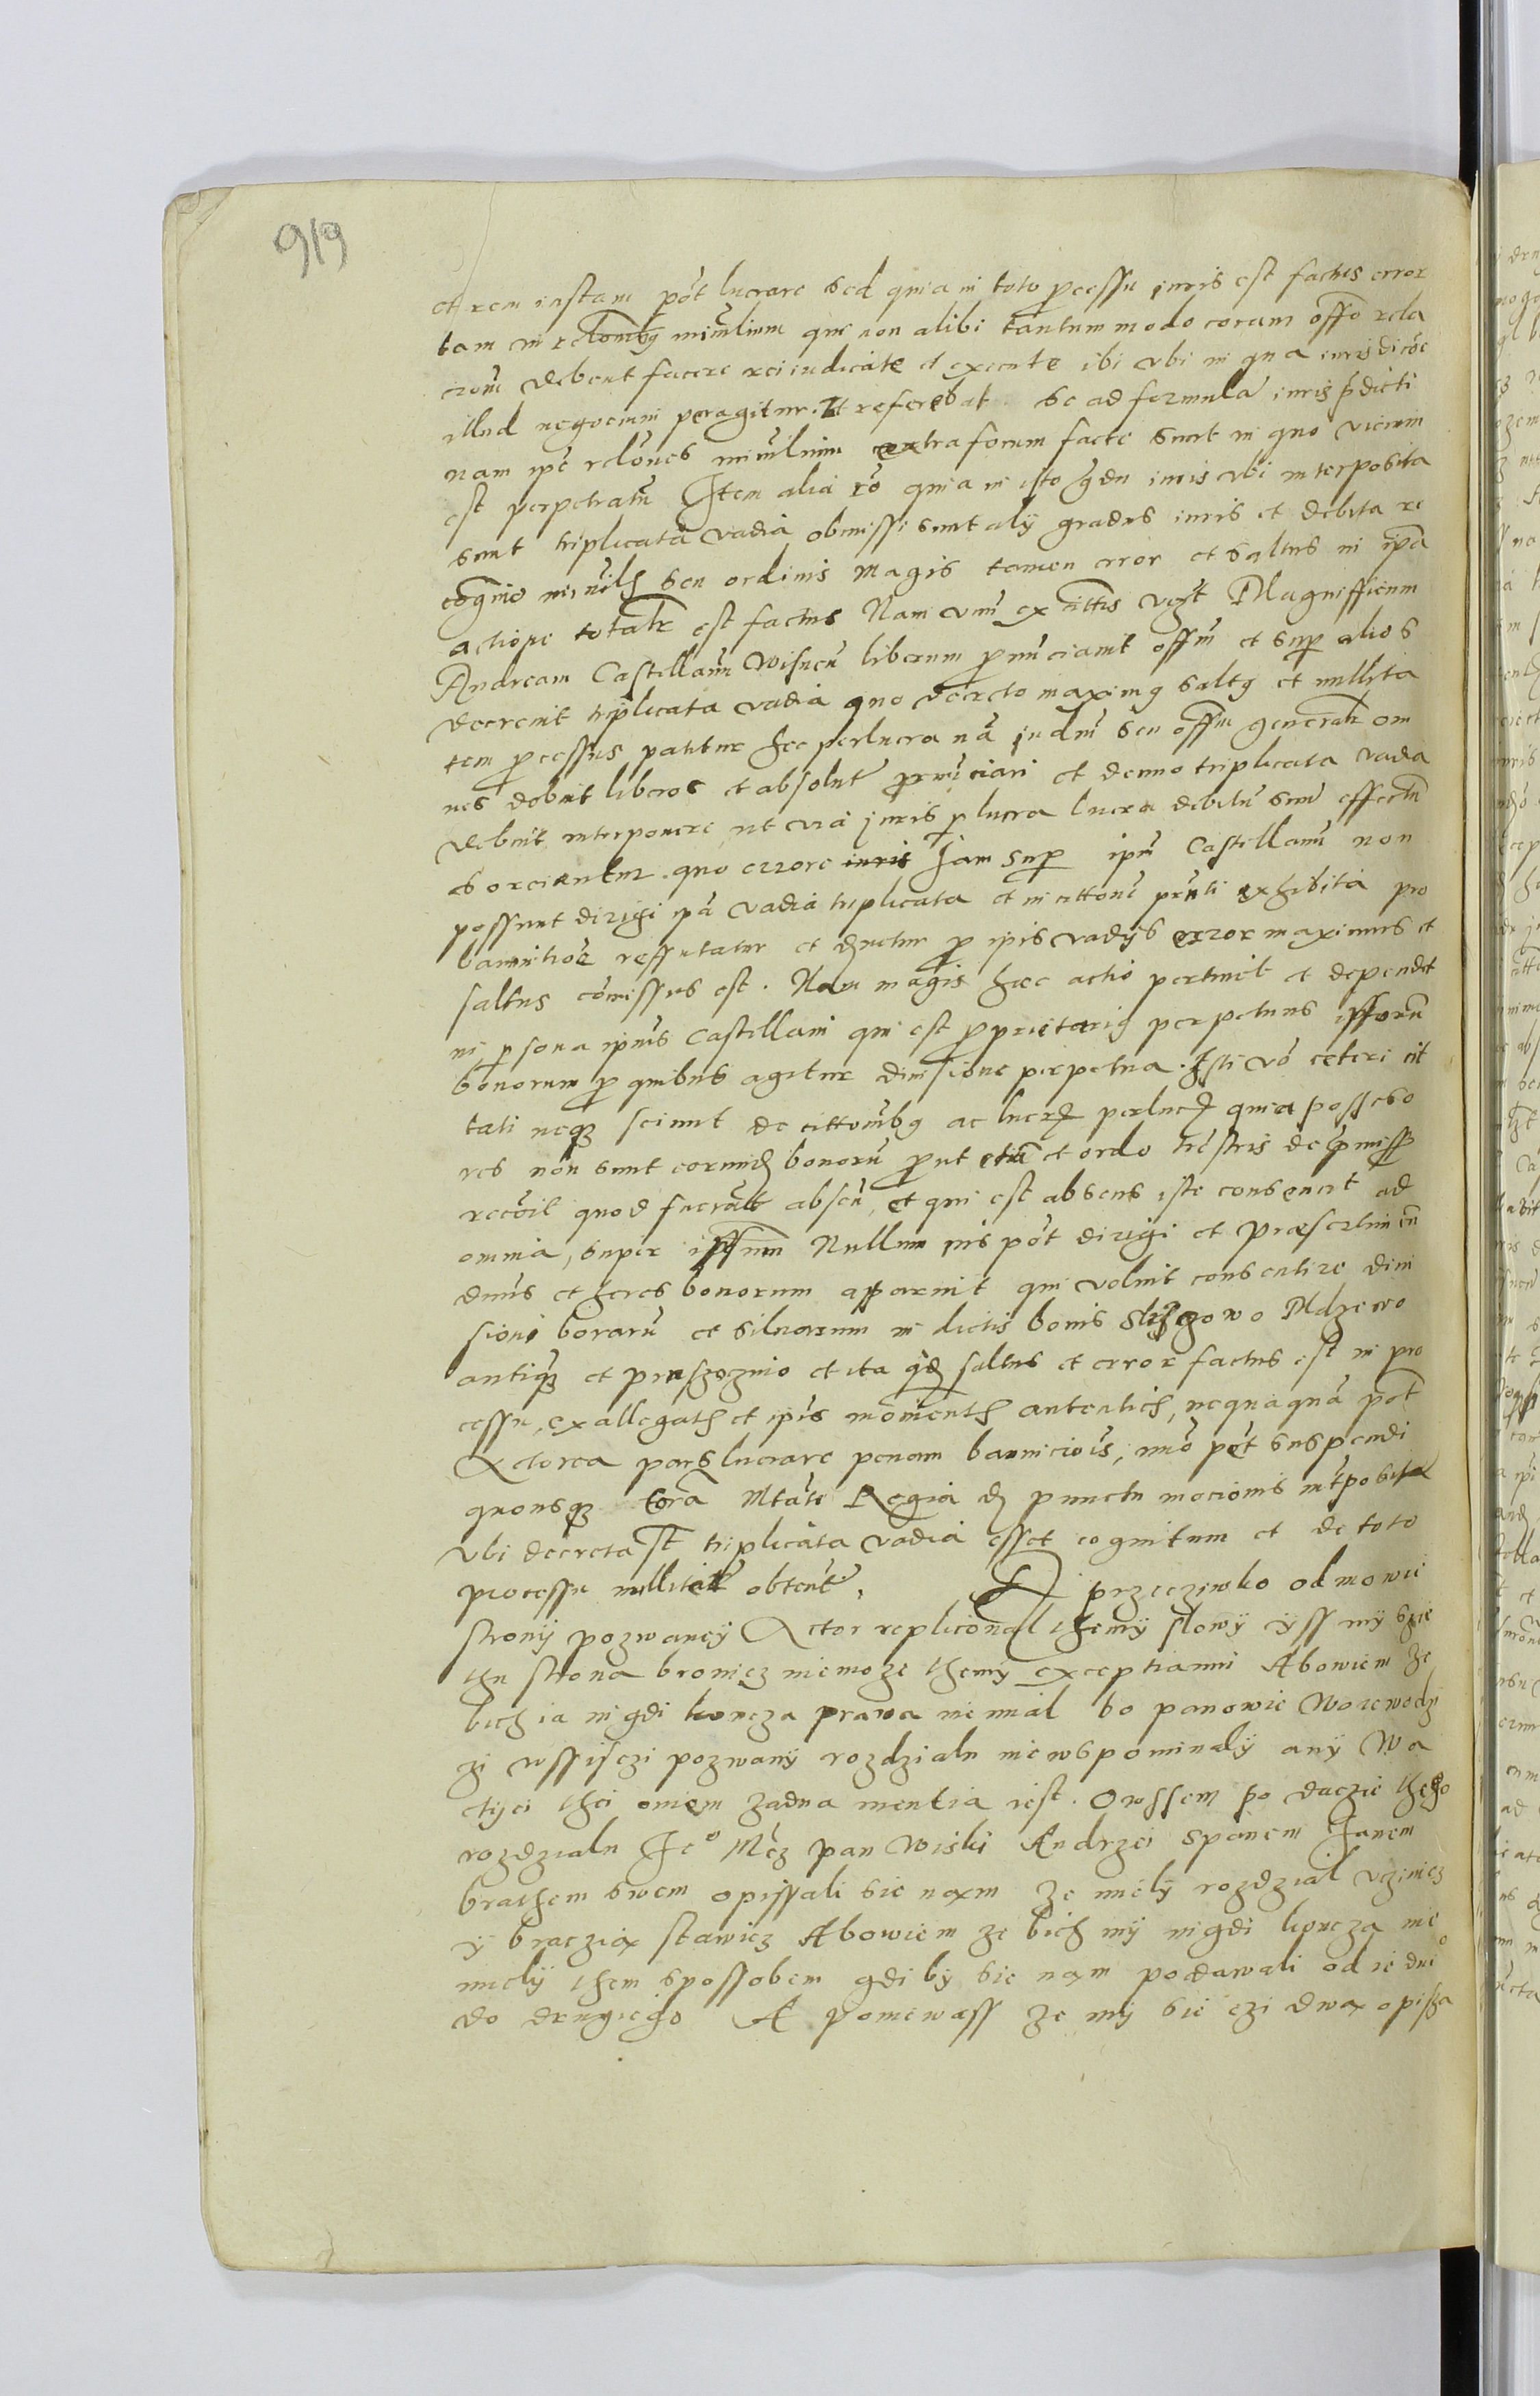 919
et rem iustam pót lucrare sed quia in toto pcessu iuris est factus error
tam in relombq mirlium qui non alibi tantummodo coram offo rela
cionē debent facere rei iudicate et execute ibi vbi in qua iurisdicōe
illud negocium peragitur. Et referebat se ad formulā iuris pdicti
nam ipē relōnes mirlium extra forum facte sunt in quo vicium
est perpetratū Item alia rō quia in isto gdu iuris vbi interposita
sunt triplicata vadia obmissi sunt alij gradus iuris et debita re
cognicio seu ordinis magis tamen error et saltus in ipā
actione totalr est factus Nam vnū ex cittis vgt Magnifficum
Andream Castellanū Wisneñ liberum pnūciauit offm et sup alios
decreuit triplicata vadia quo decreto maximq saltq et nullita
tem pcessus patitur hec perlucra nā judm seu offm generalr om
nes debuit liberos et absolutˀ pronūciari et demo triplicata vadia
debuit interponere, ut via juris p lucra lucra debitū suū effectū
sorcirentur. quo errore iuris Jam sup ipm Castellanū non
possunt dirigi ipā vadia triplicata et in cittone pnti exhibita pro
bannitōe reffutatur et ducitur p ipis vadijs error maximus et
saltus cōmissus est. Nam magis hæc actio pertinet et dependet
in psona ipius Castellani qui est proprietariq perpetuus ipsorū
bonorum p quibus agitur diuisione perpetua. Isti vō ceteri cit
tati neqz sciunt de cittombq ac lucrꝫ perlucꝫ quia possesso
res non sunt eorund bonorū put etiā et ordo trēstris de pmissꝫ
recōil quod fuerāt absen, et qui est absens iste consencit ad
omnia, super ipsum Nullum ius pót dirigi et præsertim cū
dnūs et heres bonorum apparuit qui voluit consentire diui
sioni boraru et siluarum in dictis bonis Slizgowo Mdzewo
antiqꝫ et pruszoznio et ita qđ saltus et error factus est in pro
cessu, ex allegatꝫ et ipis momentꝫ autenticꝫ, nequaquā pot
Actorea pars lucrare penam bannicioīs, imō pēt suspendi
quousqz corā Mtāte Regia đ punctu mocionis intposita
vbi decreta st triplicāta vadia esset cognitum et de toto
processu nullitatˀ obtentˀ. A przeciwko odmowie
strony pozwaney Actor replicowal themy slowy yss my sie
thu strona bronicz niemoze themy exceptiamii Abowiem ze
bich ia nigdi koncza prawa nie mial bo panowie Woiewodzi
czi wssisczi pozwany rozdzialu nie wspominaly any Wa
ctyei thei oniem zadna mentia iest. Owssem po dacie thego
rozdzialu Jeo Mcz pan Wiski Andrzei spanem Janem
brathem swem opissali sie nam ze miely rozdzial vczinicz
y braczia stawicz Abowiem ze bich my nigdi koncza nie
miely them spossobem gdi by sie nam podawali od iedneo
do drugiego A poniewass ze my sie czi dwa opisza